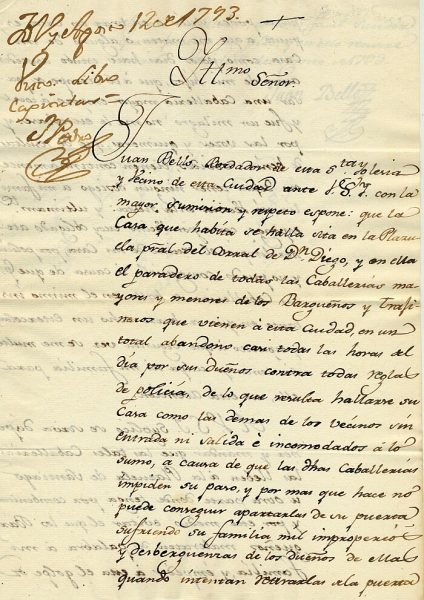 Agosto 12 de 1793.
Visto. Libro
Yllmo
Señor.
Juan Bello Bordador de esta Sta Iglesia
y Vecino de esta Ciudad ante V.S.Y. con la
mayor sumision y respeto espone: que la
Casa que habita se halla sita en la Plazu
ela pral del Corral de Dn Diego, y en ella
el paradero de todas las Caballerías ma
yores y menores de los Vargueños y Trafi
neros que vienen à esta Ciudad, en un
total abandono casi todas las horas del
día por sus dueños contra todas reglas
de policía, de lo que resulta hallarse su
Casa como las demas de los vecinos sin
entrada ni salida è incomodados à lo
sumo, a causa de que las dhas Caballerías
impiden su paso, y por mas que hace no
puede conseguir apartarlas de su puerta
sufriendo su familia mil improperios
y desberguenzas de los dueños de ellas
quando intentan retirarlas a la puerta